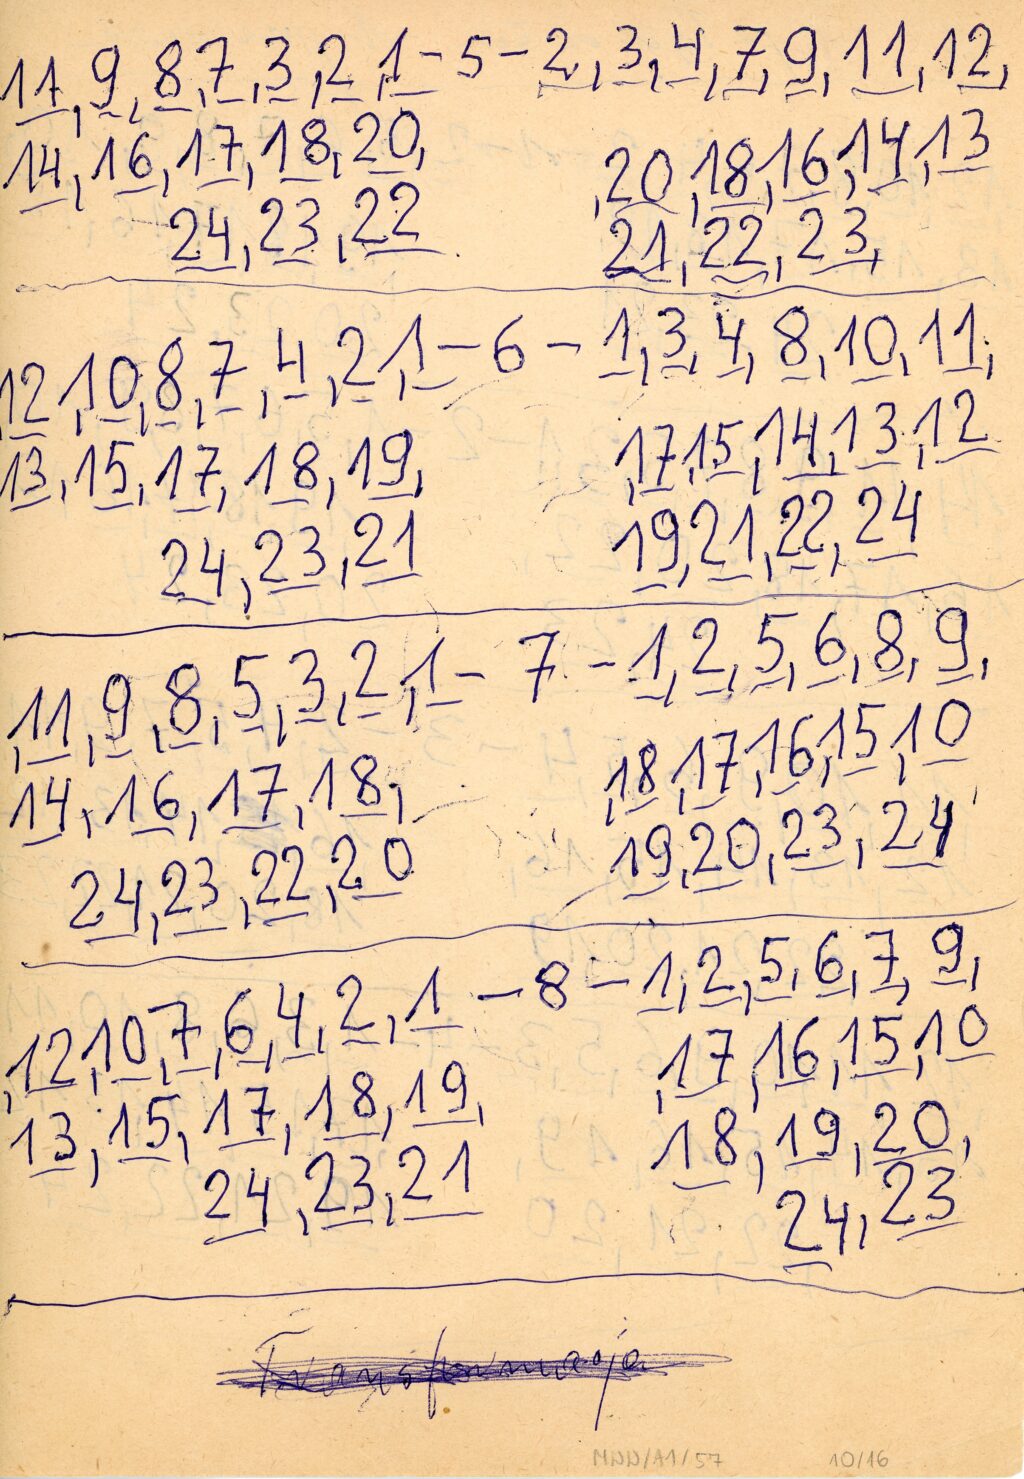 11, 9, 8, 7, 3, 2, 1 – 5 – 2, 3, 4, 7, 9, 11, 12,
14, 16, 17, 18, 20, ,20, 18, 16, 14, 13
24, 23, 22 21, 22, 23,
12, 10, 8, 7, 4, 2, 1 – 6 – 1, 3, 4, 8, 10, 11,
13, 15, 17, 18, 19, ,17, 15, 14, 13, 12
24, 23, 21 19, 21, 22, 24
,11, 9, 8, 5, 3, 2, 1 – 7 – 1, 2, 5, 6, 8, 9,
14, 16, 17, 18, ,18, 17, 16, 15, 10
24, 23, 22, 20 ,19, 20, 23, 24
,12, 10, 7, 6, 4, 2, 1 – 8 – 1, 2, 5, 6, 7, 9,
13, 15, 17, 18, 19, ,17, 16, 15, 10
24, 23, 21 18, 19, 20,
24, 23
Transformacja
10/16